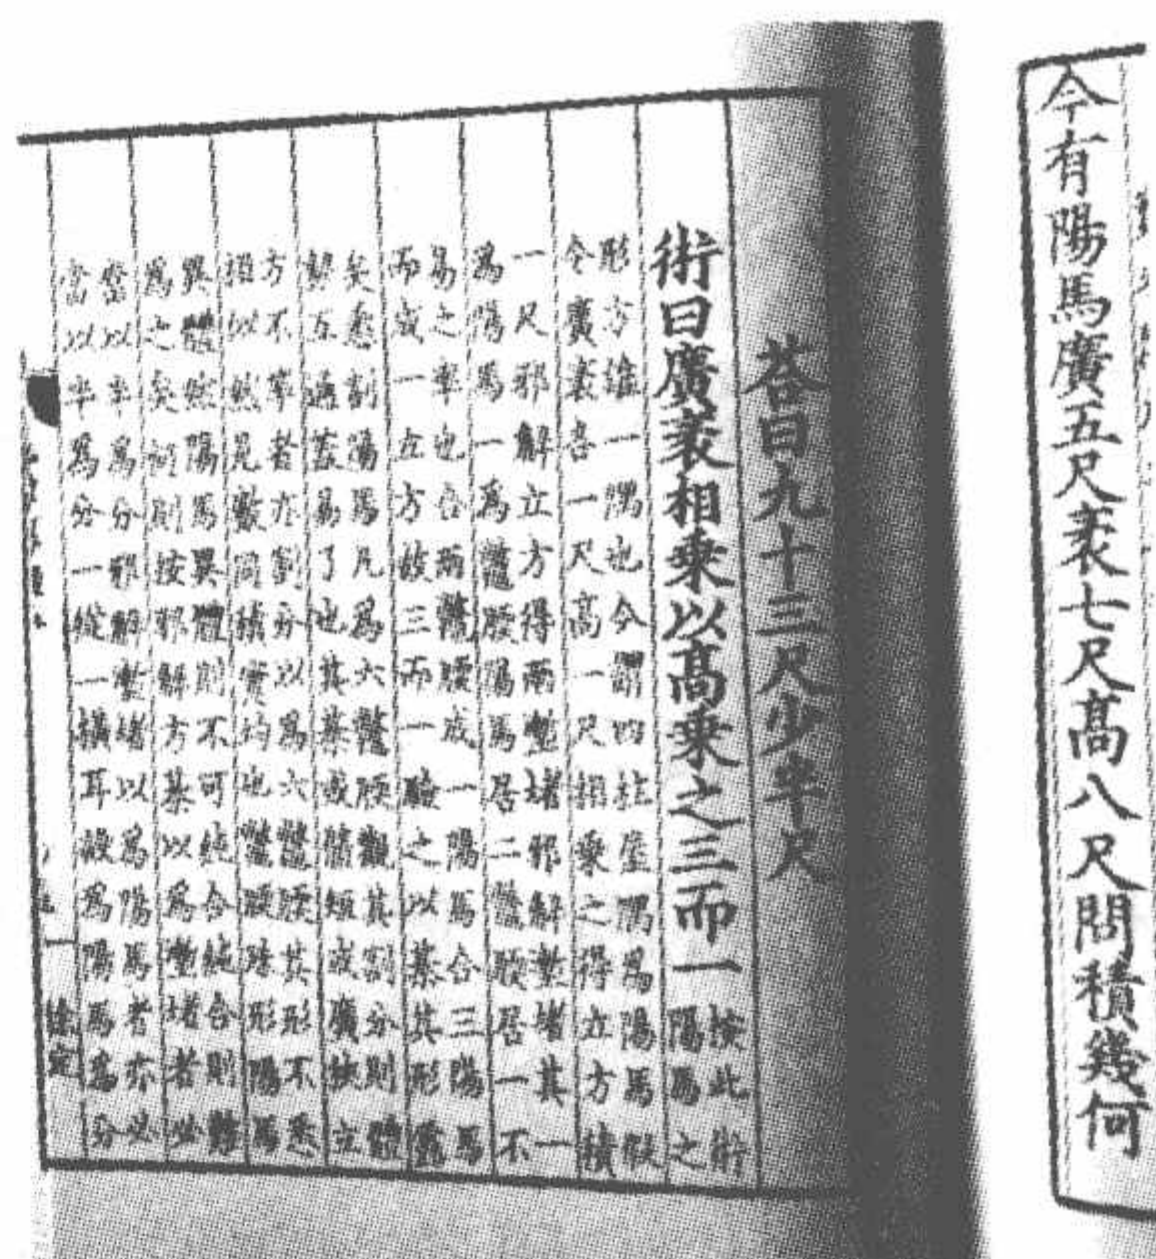 今有陽馬廣五尺袤七尺高八尺問積幾何
荅曰九十三尺少半尺
術曰廣袤相乘以高乘之三而一
按此術
陽馬之
形方錐一隅也今謂四柱屋隅爲陽馬假
令廣袤各一尺高一尺相乘之得立方積
一尺邪解立方得兩壍堵邪解壍堵其一
爲陽馬一爲鼈腰陽馬居二鼈腰居一不
易之率也合兩鼈腰成一陽馬合三陽馬
而成一立方故三而一驗之以棊其形露
矣悉割陽馬凡爲六鼈腰觀其割分則體
勢互通蓋易了也其棊或脩短或廣狹立
方不等者亦割分以爲六鼈腰其形不悉
相似然見數同積實均也鼈腰殊形陽馬
異體然陽馬異體則不可純合純合則難
爲之矣何則按邪解方棊以爲壍堵者必
當以半爲分邪解壍堵以爲陽馬者亦必
當以半爲分一縱一橫耳設爲陽馬爲分